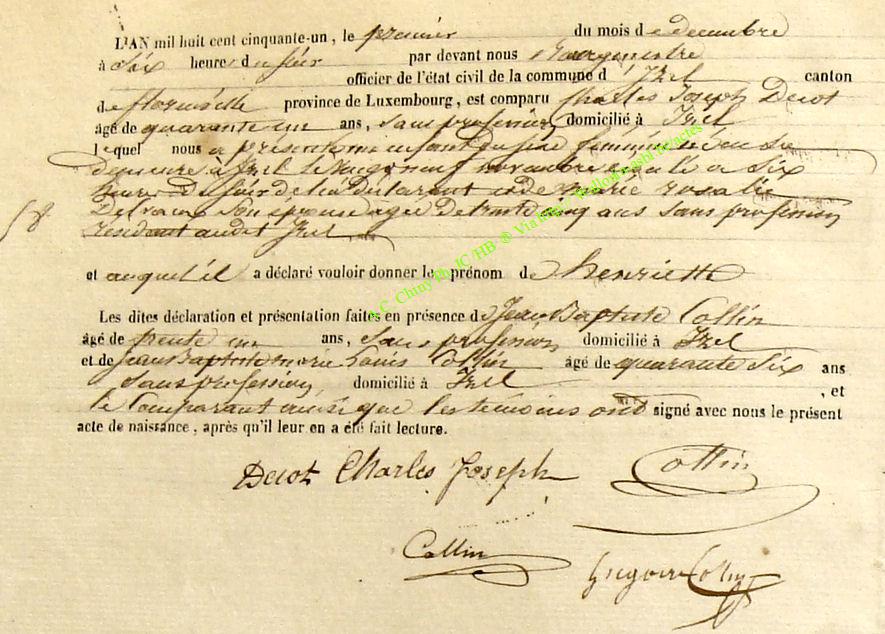 L'AN mil huit cent cinquante-un, le premier du mois de decembre
à Six heures du soir par devant nous Bourgmestre
officier de l'état civil de la commune d'Izel canton
de florenville province de Luxembourg, est comparu Charles Joseph Decot
âgé de quarante un ans, sans profession domicilié à Izel
lequel nous a présenté un enfant du sexe féminin né en sa
demeure à Izel le vingt neuf novembre à six
heures du soir de lui Déclarant et de Marie rosalie
son épouse agée De trente cinq ans sans profession
résidant audit Izel
58
et auquel il a déclaré vouloir donner le prénom de henriette
Les dites déclaration et présentation faites en présence de Jean Baptiste Collin
âgé de trente un ans, sans profession domicilié à Izel
et de Jean Baptiste marie Louis Collin âgé de quarante Six ans
sans profession domicilié à Izel , et
le Comparant ainsi que les temoins ont signé avec nous le présent
acte de naissance, après qu'il leur en a été fait lecture.
Decot Charles Joseph Collin
Collin
Gregoire Collin
A.C. Chiny Ph. JC HB ® Via http://Wallonia